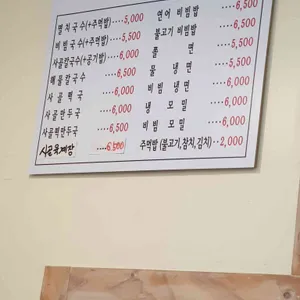 멸치국수(+주먹밥) ····5,000
비빔국수(+주먹밥) ····5,500
사골칼국수(+공기밥) ····6,000
해물칼국수 ····6,500
사골떡국 ····6,000
사골만두국 ····6,000
사골떡만두국 ····6,500
사골육개장 ····6,500
연어비빔밥 ····6,500
불고기비빔밥 ····6,500
쫄면 ····5,500
물냉면 ····6,000
비빔냉면 ····6,000
냉모밀 ····6,000
비빔모밀 ····6,000
주먹밥(불고기,참치,김치)··2,000